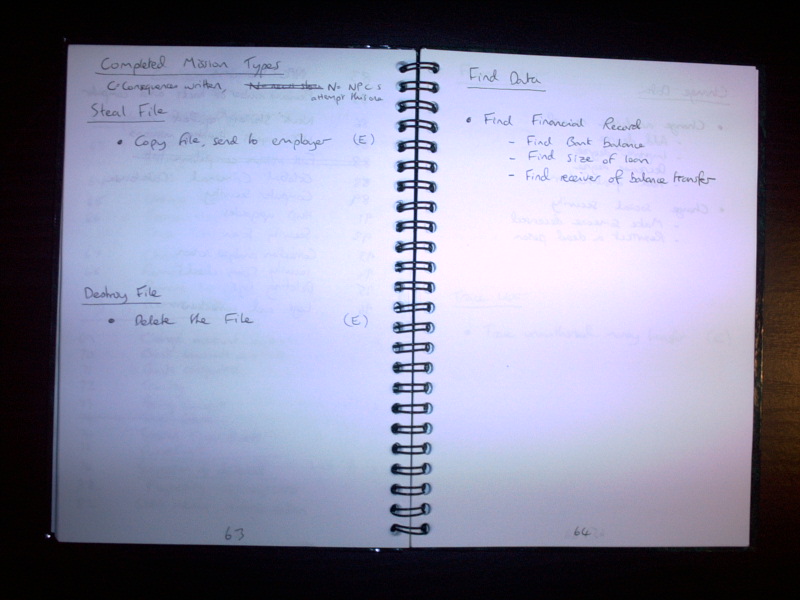 Completed Mission Types
C = Consequences written No NPCs
attempt this one
Steal File
• Copy file, send to employer (E)
Destroy File
• Delete the File (E)
63
Find Data
• Find Financial Record
- Find Bank balance
- Find size of loan
- Find receiver of balance transfer
64